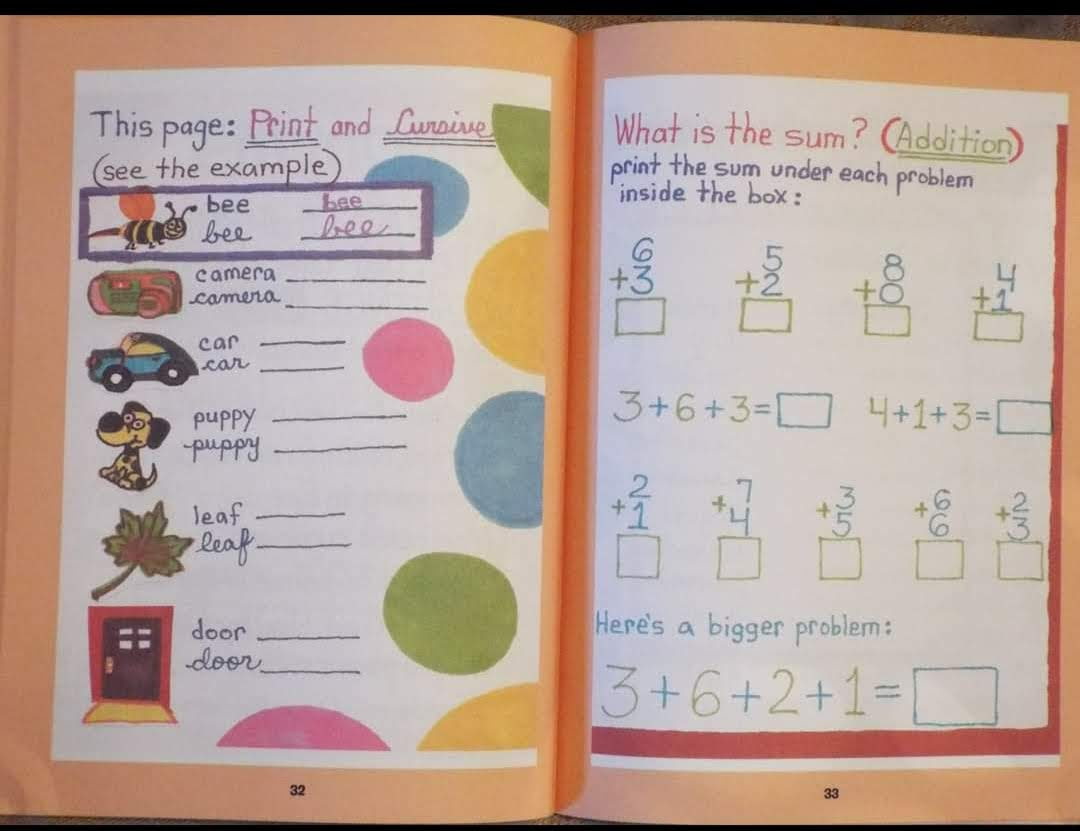 This page: Print and Cursive
(see the example)
bee bee
bee bee
camera
camera
car
car
puppy
puppy
leaf
leaf
door
door
32
What is the sum? (Addition)
print the sum under each problem
inside the box:
6 5 8 4
+3 +2 +0 +1
3+6+3= 4+1+3=
2 7 3 6 2
+1 +4 +5 +6 +3
Here's a bigger problem:
3+6+2+1=
33